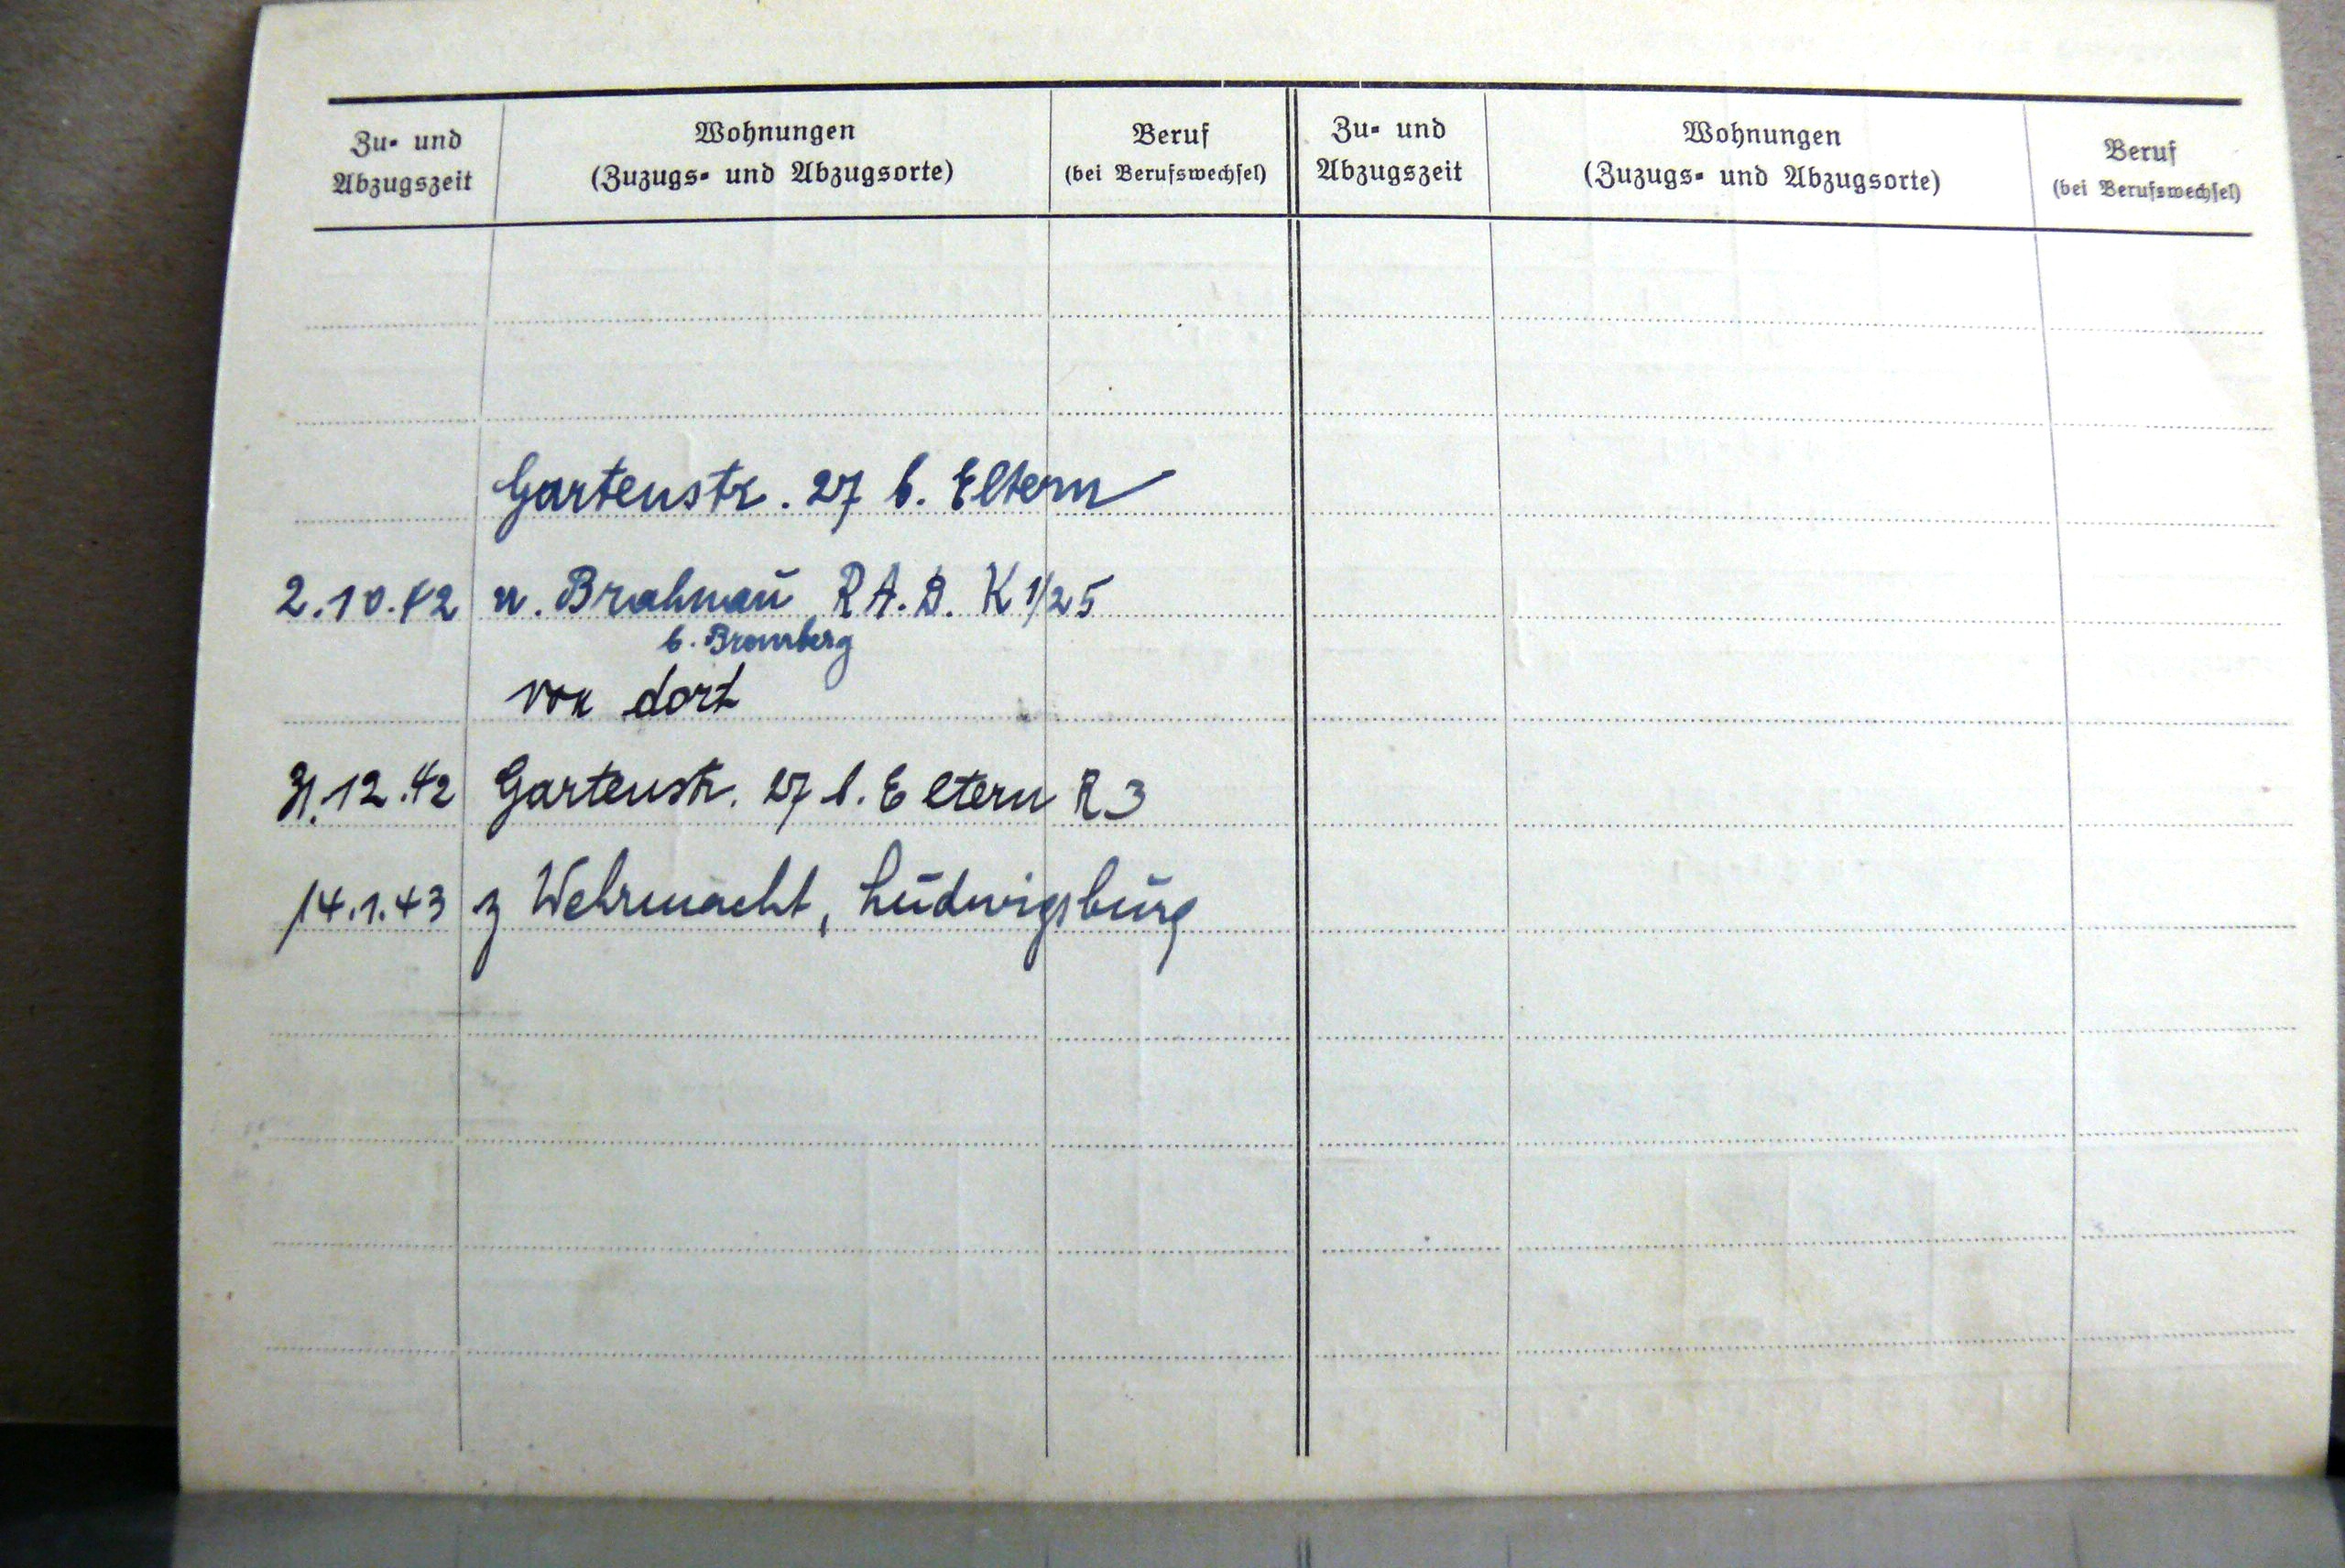 Zu- und Abzugszeit
Wohnungen
(Zuzugs- und Abzugsorte)
Beruf
(bei Berufswechsel)
Zu- und Abzugszeit
Wohnungen
(Zuzugs- und Abzugsorte)
Beruf
(bei Berufswechsel)
Gartenstr. 27 b. Eltern
2.10.42 n. Brahnau R A. D. K 1/25
b. Bromberg
von dort
31.12.42 Gartenstr. 27 b. Eltern R 3
14.1.43 z Wehrmacht, Ludwigsburg